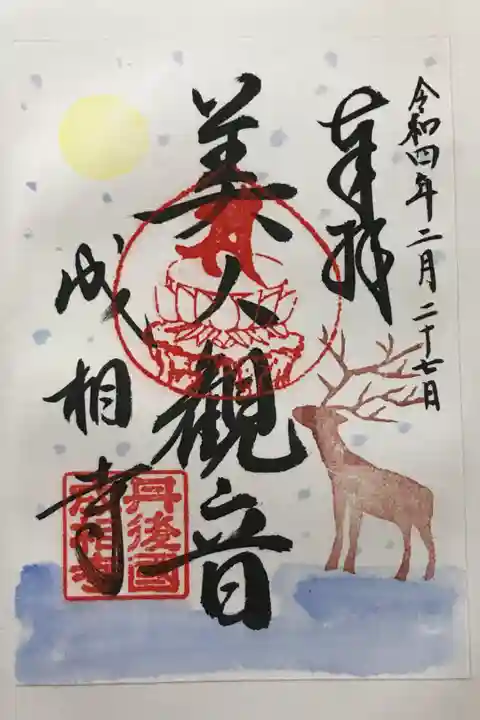 令和四年二月二十七日
奉拝
美人観音
成相寺
丹後国
成相寺